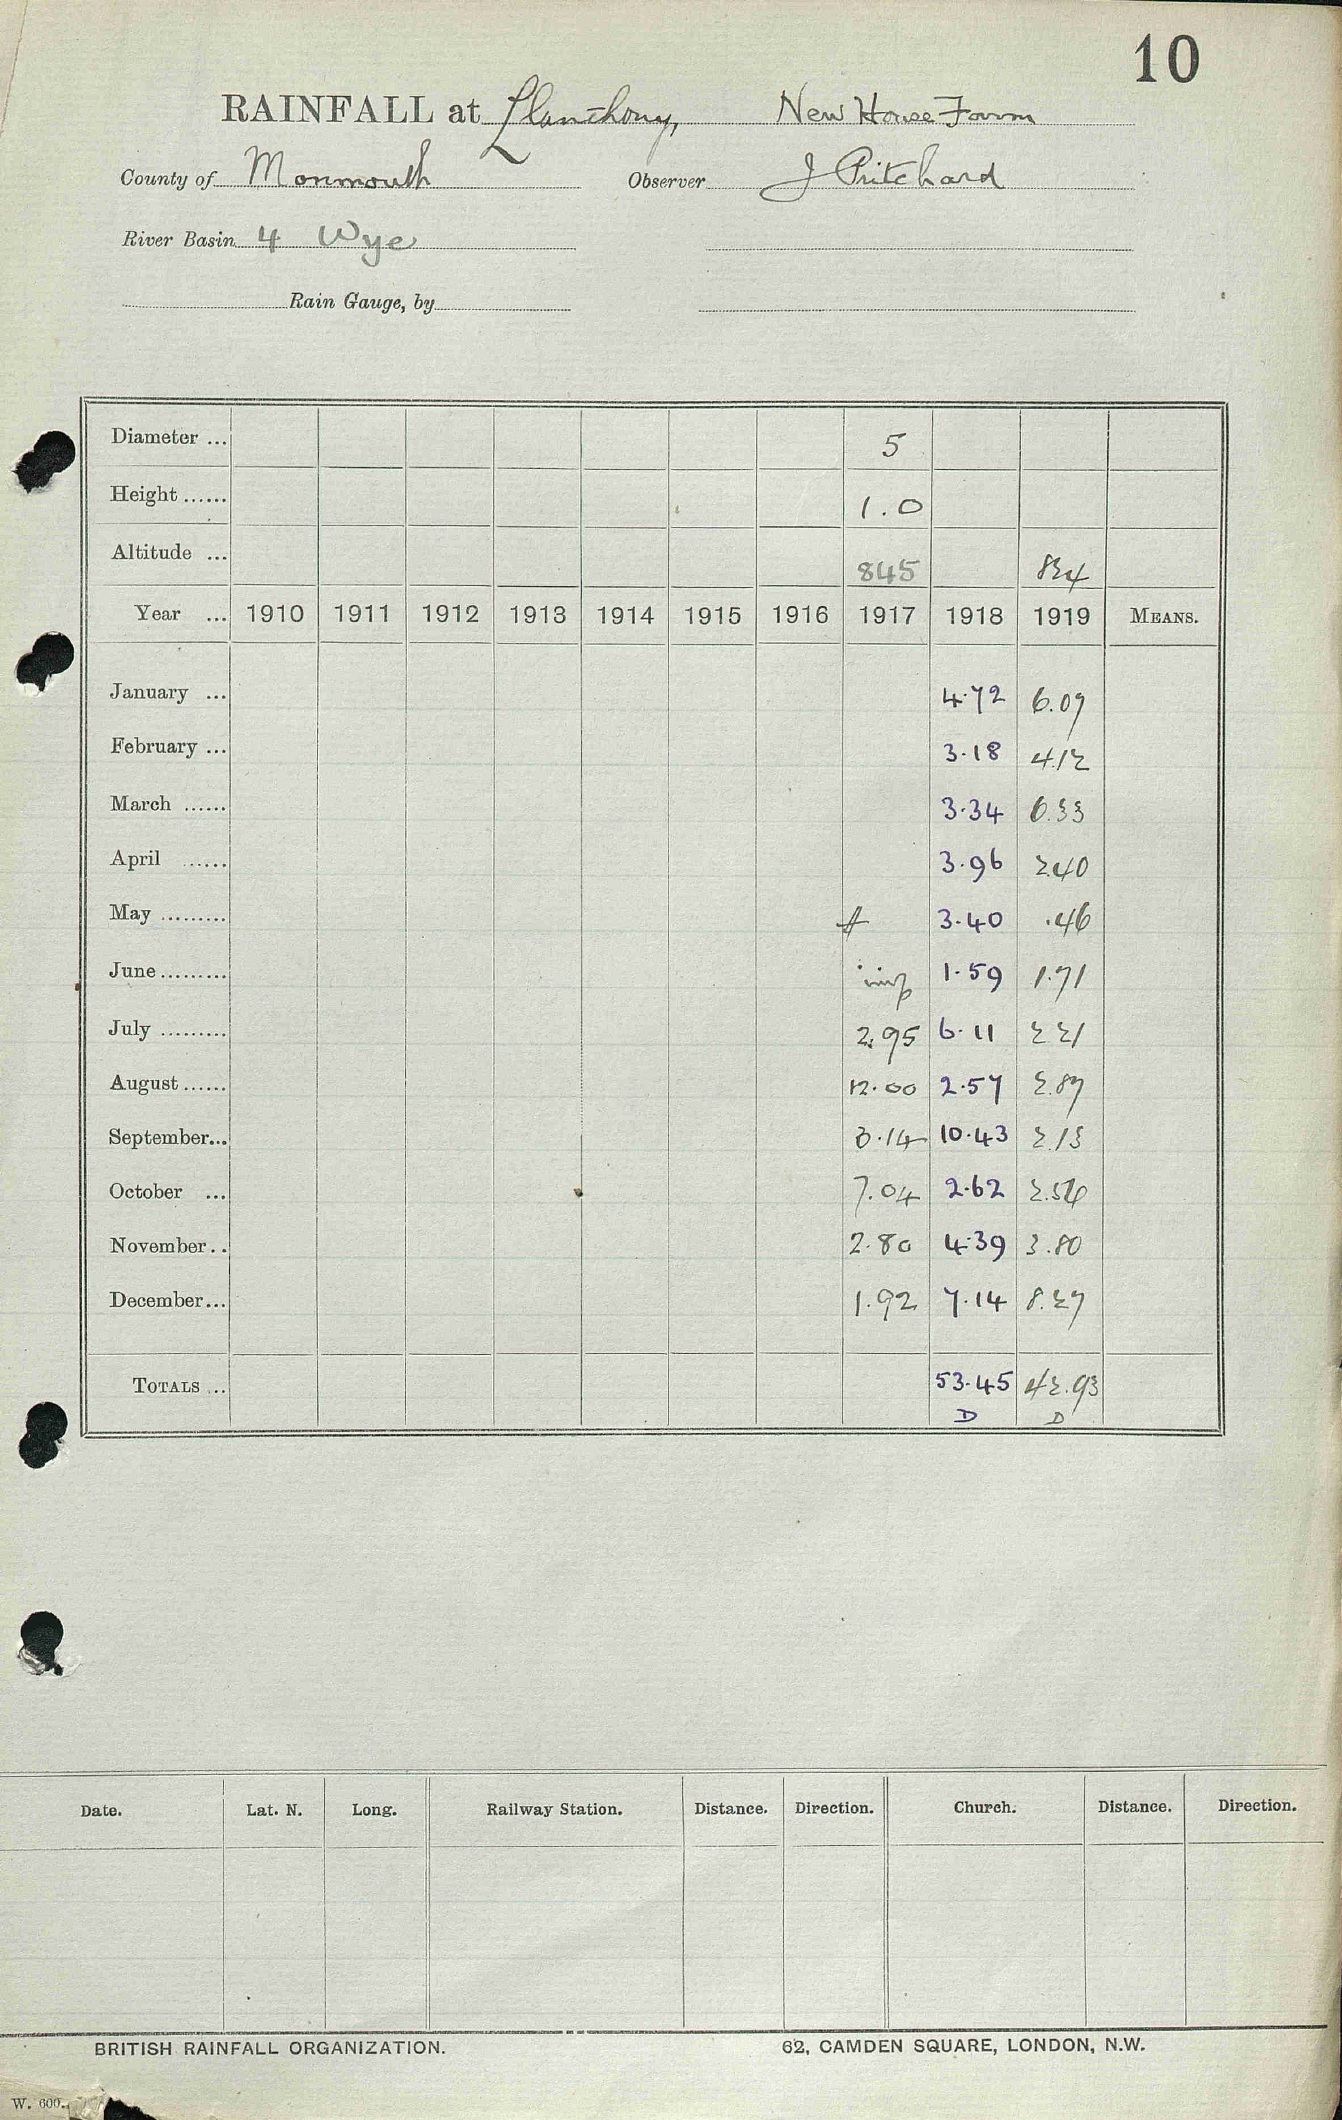 10
RAINFALL at Llanthony, New House Farm
County of Monmouth Observer J Pritchard
River Basin 4 Wye
Rain Gauge, by
Diameter ... 5
Height ...... 1.0
Altitude ... 845 834
Year ... 1910 1911 1912 1913 1914 1915 1916 1917 1918 1919 MEANS.
January ... 4.72 6.07
February ... 3.18 4.12
March ...... 3.34 6.33
April ...... 3.96 2.40
May ......... 3.40 .46
June ......... imp 1.59 1.71
July ......... 2.95 6.11 2.21
August ...... 12.00 2.57 2.87
September... 3.14 10.43 2.13
October ... 7.04 2.62 2.56
November .. 2.80 4.39 3.80
December... 1.92 7.14 8.27
TOTALS ... 53.45 42.93
D D
Date. Lat. N. Long. Railway Station. Distance. Direction. Church. Distance. Direction.
BRITISH RAINFALL ORGANIZATION. 62, CAMDEN SQUARE, LONDON, N.W.
W. 600.